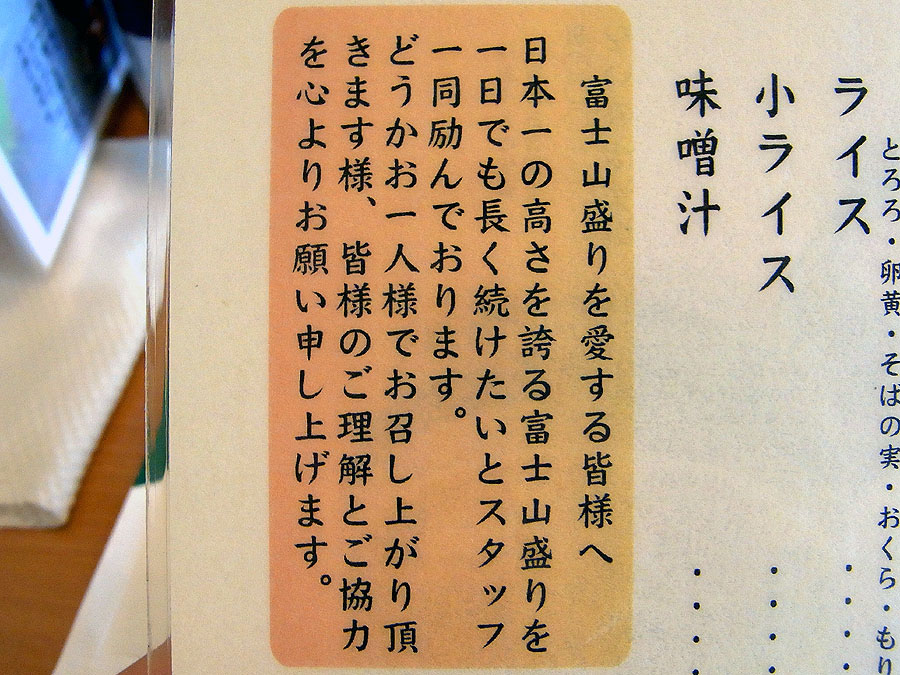 とろろ・卵黄・そばの実・おくら・もり
ライス・・・・
小ライス・・・・
味噌汁・・・・
富士山盛りを愛する皆様へ
日本一の高さを誇る富士山盛りを
一日でも長く続けたいとスタッフ
一同励んでおります。
どうかお一人様でお召し上がり頂
きます様、皆様のご理解とご協力
を心よりお願い申し上げます。